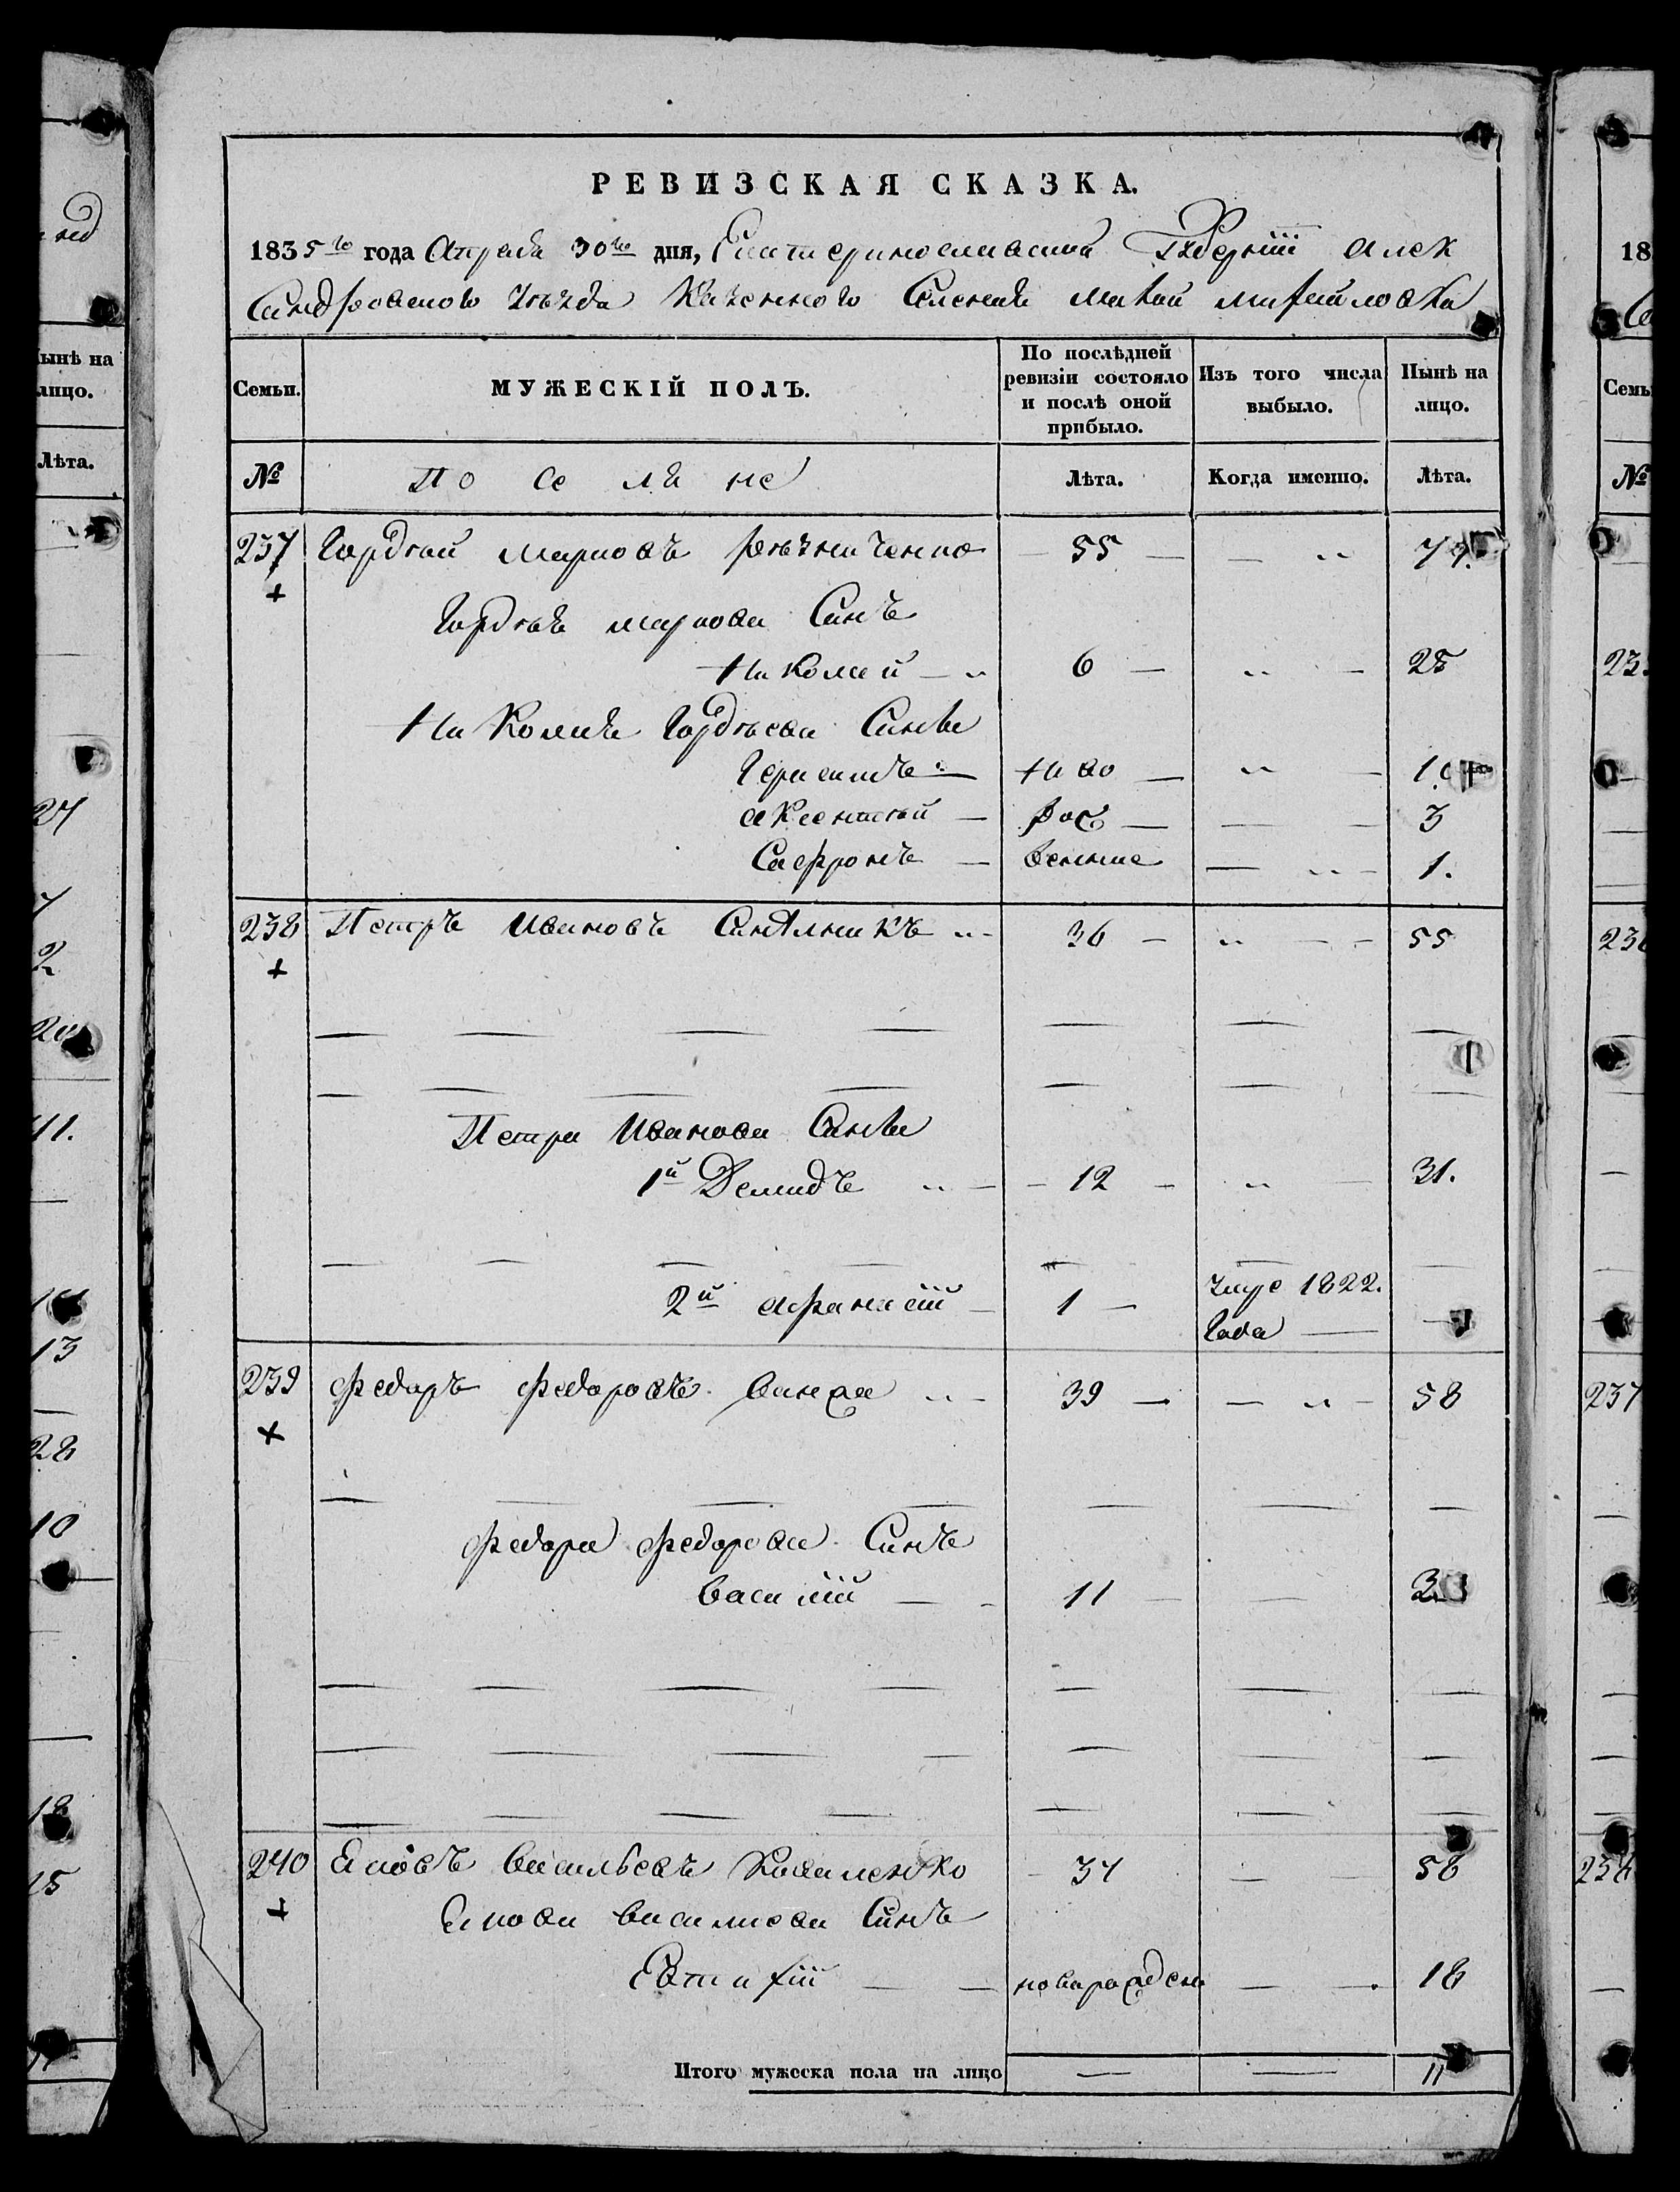 РЕВИЗСКАЯ СКАЗКА.
1835го года Апреля 30го дня, Екатеринославской Губернiи Алек
сандровского Уѣзда Казенного Селения Малой Михайловки
Семьи. МУЖЕСКІЙ ПОЛЪ. По послѣдней ревизіи состояло и послѣ оной прибыло. Изъ того числа выбыло. Нынѣ на лицо.
№ Поселяне Лѣта. Когда именно. Лѣта.
237 Гордѣй Марковъ Рѣзниченко 55
Гордѣя Маркова Синъ
Николай 6 25
Николая Гордѣева Сини
Герасимъ Ново
Аксентий рож 3
Сафронъ денные 1.
238 Петръ Ивановъ 36 55
Петра Иванова Сини
1й Демидъ 12 31.
2й Афанасiй 1 умре 1822.
Года
239 Федоръ Федоровъ 39 58
Федора Федорова Синъ
Василiй 11
240 Яковъ Васильевъ Коваленко 56
Якова Василиева Синъ
Евтихiй новарожден 18
Итого мужеска пола на лицо 11
Нынѣ на
лицо.
Лѣта.
2
11.
13
28
10
15
18
№
237